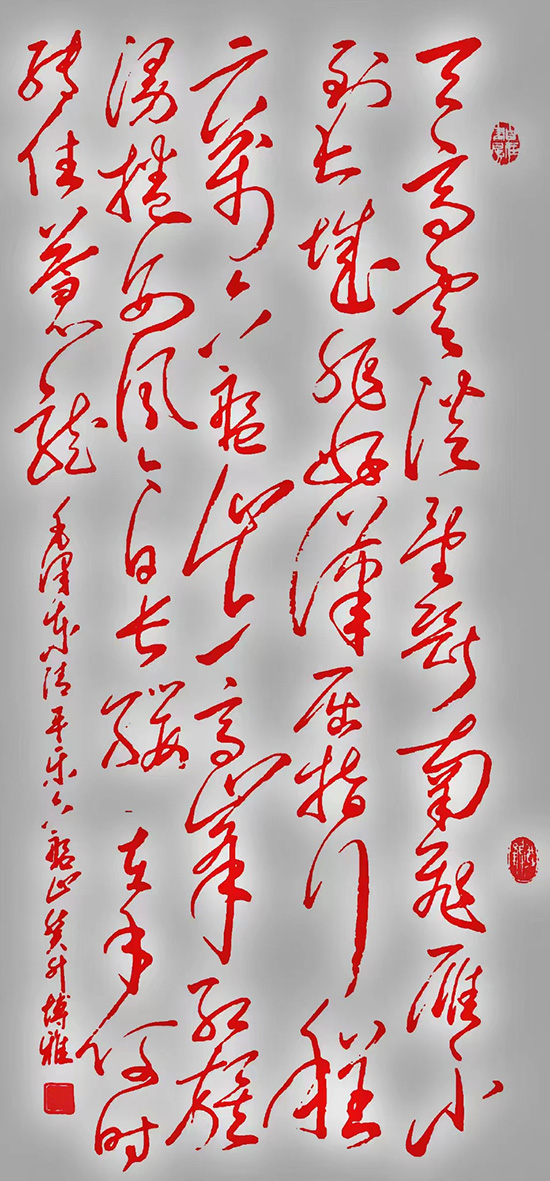 天高云淡望断南飞雁不
到长城非好汉屈指行程
二万六盘山上高峰红旗
漫捲西风今日长缨在手何时
缚住苍龙
毛泽东清平乐六盘山 博雅